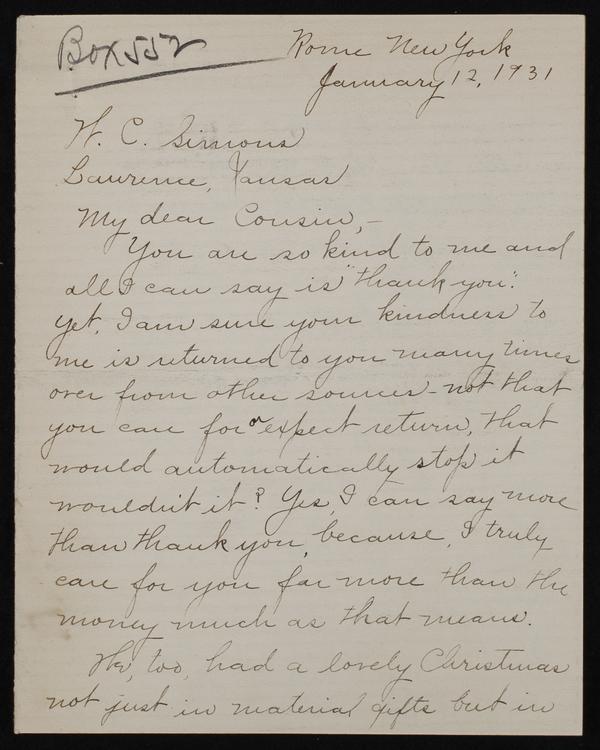 Box 552
Rome New York
January 12, 1931
W. C. Simons
Lawrence, Kansas
My dear Cousin,-
You are so kind to me and
all I can say is "thank you".
Yet, I am sure your kindness to
me is returned to you many times
over from other sources - not that
you care for or expect return, that
would automatically stop it
wouldn't it? Yes, I can say more
than thank you, because, I truly
care for you far more than the
money much as that means.
We, too, had a lovely Christmas
not just in material gifts but in